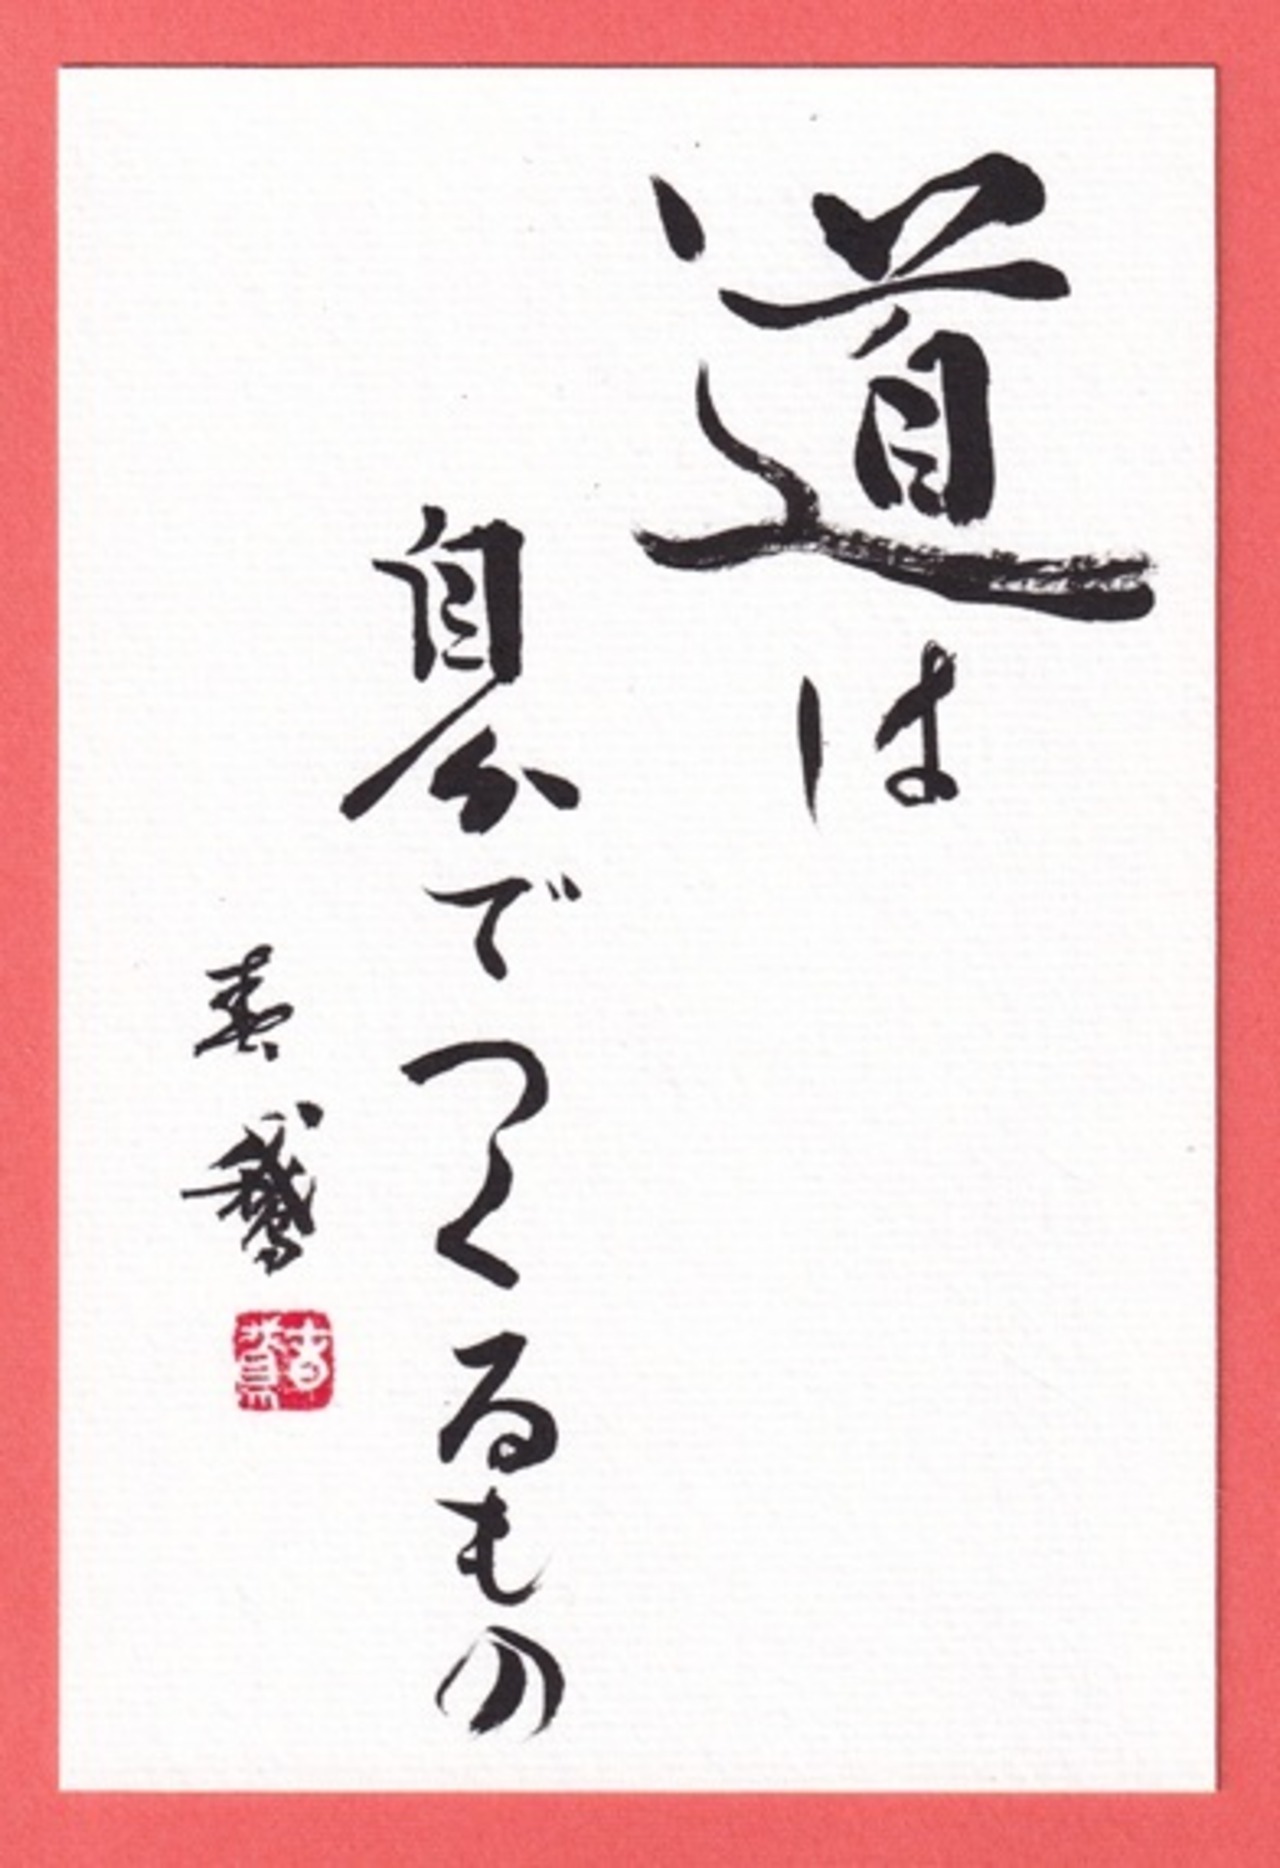 道は
自分でつくるもの
春鵞